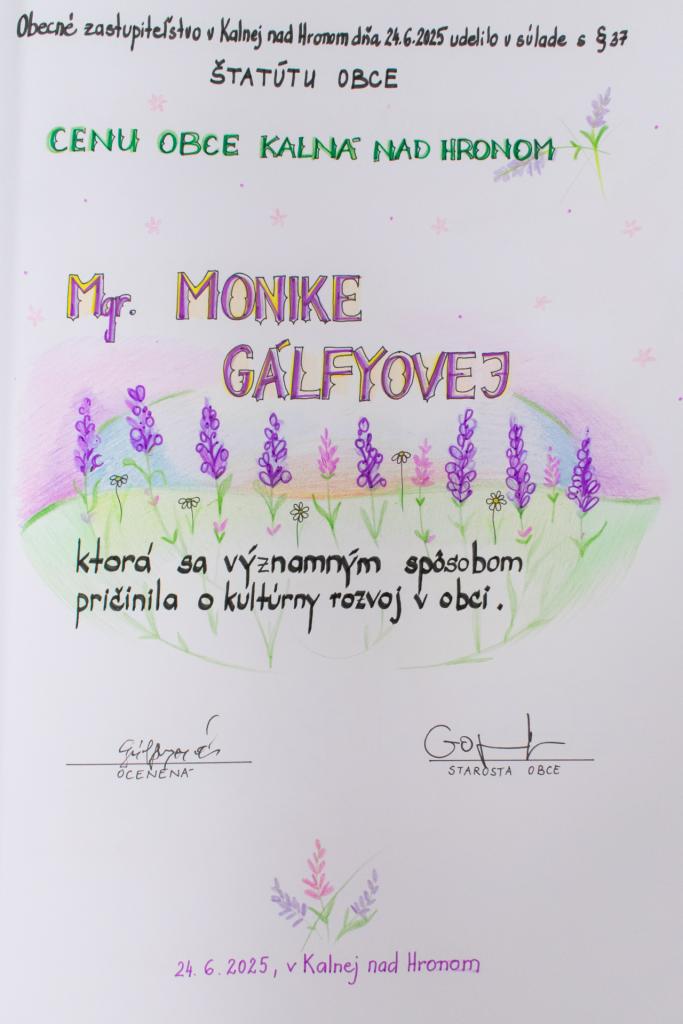 Obecné zastupiteľstvo v Kalnej nad Hronom dňa 24.6.2025 udelilo v súlade s § 37
ŠTATÚTU OBCE
CENU OBCE KALNÁ NAD HRONOM
Mgr. MONIKE
GÁLFYOVEJ
ktorá sa významným spôsobom
pričinila o kultúrny rozvoj v obci.
OCENENÁ
STAROSTA OBCE
24.6.2025, v Kalnej nad Hronom